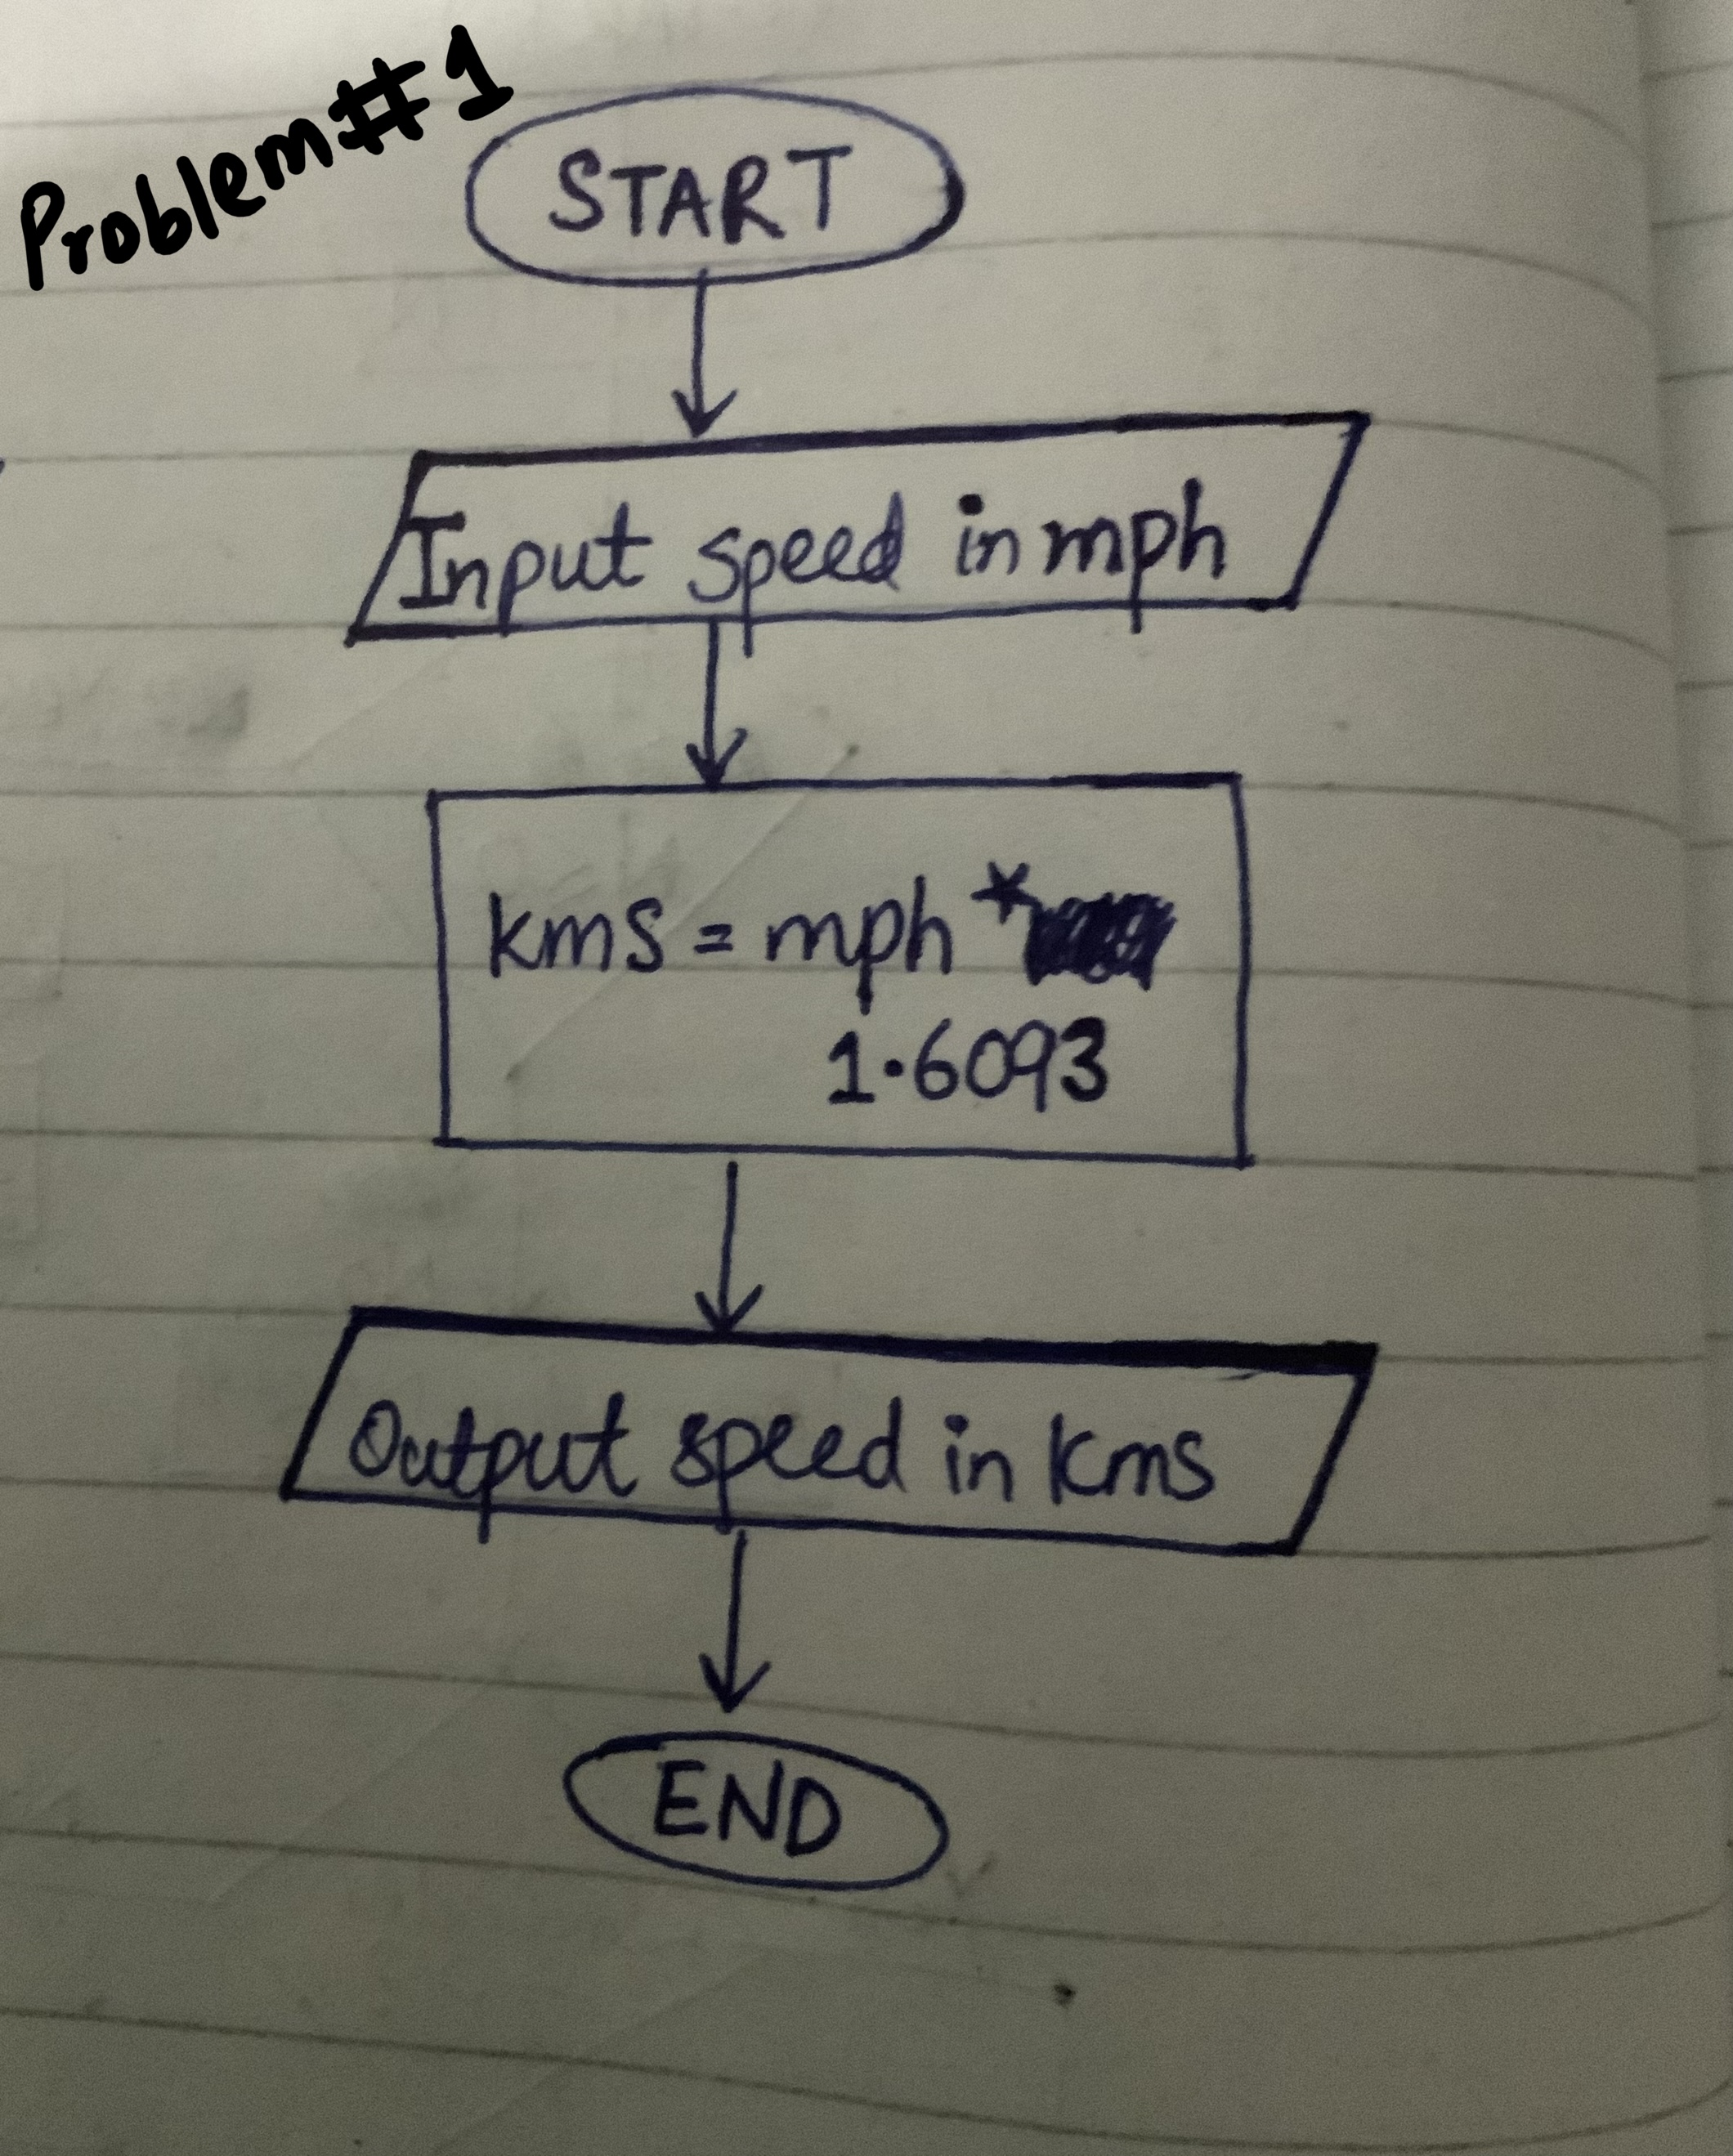 Problem#1
START
Input speed in mph
kms = mph *
1.6093
Output speed in kms
END